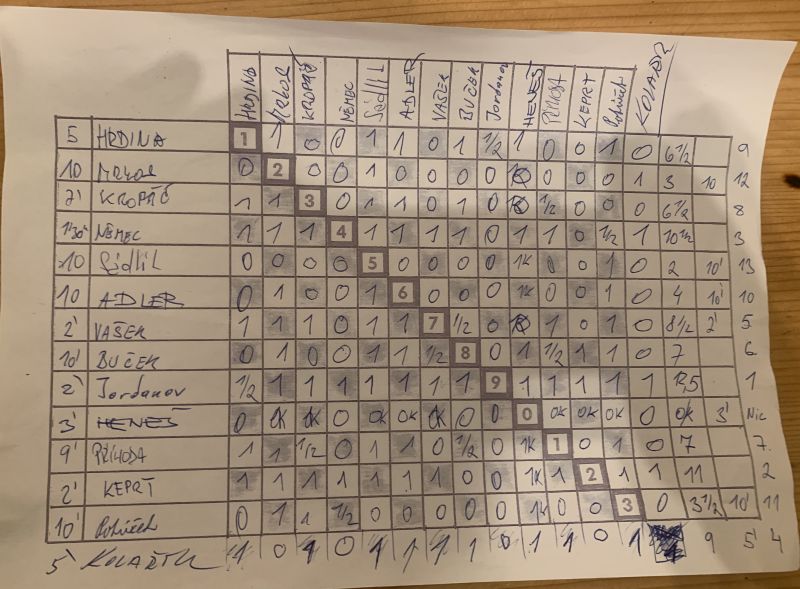 HRDINA Mrkos KROPÁČ NĚMEC Sedlil ADLER VAŠEK BUČEK Jordanov HENEŠ PŘÍHODA KEPRT KOLAŘÍK
5 HRDINA 1 1 0 0 1 1 0 1 1/2 1 0 0 1 0 6 1/2 9
10 0 2 0 0 1 0 0 0 0 0 0 0 1 3 10 12
2' KROPÁČ 1 1 3 0 1 1 0 1 0 1/2 0 0 0 6 1/2 8
1'30" NĚMEC 1 1 1 4 1 1 1 1 0 1 1 0 1/2 1 10 1/2 3
10 Sedlil 0 0 0 0 5 0 0 0 0 1K 0 0 1 0 2 10' 13
10 ADLER 0 1 0 0 1 6 0 0 0 1K 0 0 1 0 4 10' 10
2' VAŠEK 1 1 1 0 1 1 7 1/2 0 1 0 1 0 8 1/2 2' 5
10' BUČEK 0 1 0 0 1 1 1/2 8 0 1 1/2 1 1 0 7 6
2' Jordanov 1/2 1 1 1 1 1 1 1 9 1 1 1 1 1 12,5 1
3' HENEŠ 0 0K 0K 0 0K 0K 0K 0 0 0 0K 0K 0K 0 0K 3' Nic
9' PŘÍHODA 1 1 1/2 0 1 1 0 1/2 0 1K 1 0 1 0 7 7.
2' KEPRT 1 1 1 1 1 1 1 1 0 1K 1 2 1 1 11 2
10' 0 1 1 1/2 0 0 0 0 0 1K 0 0 3 0 3 1/2 10' 11
5' KOLAŘÍK 1 0 1 0 1 1 1 1 0 1 1 0 1 9 5' 4